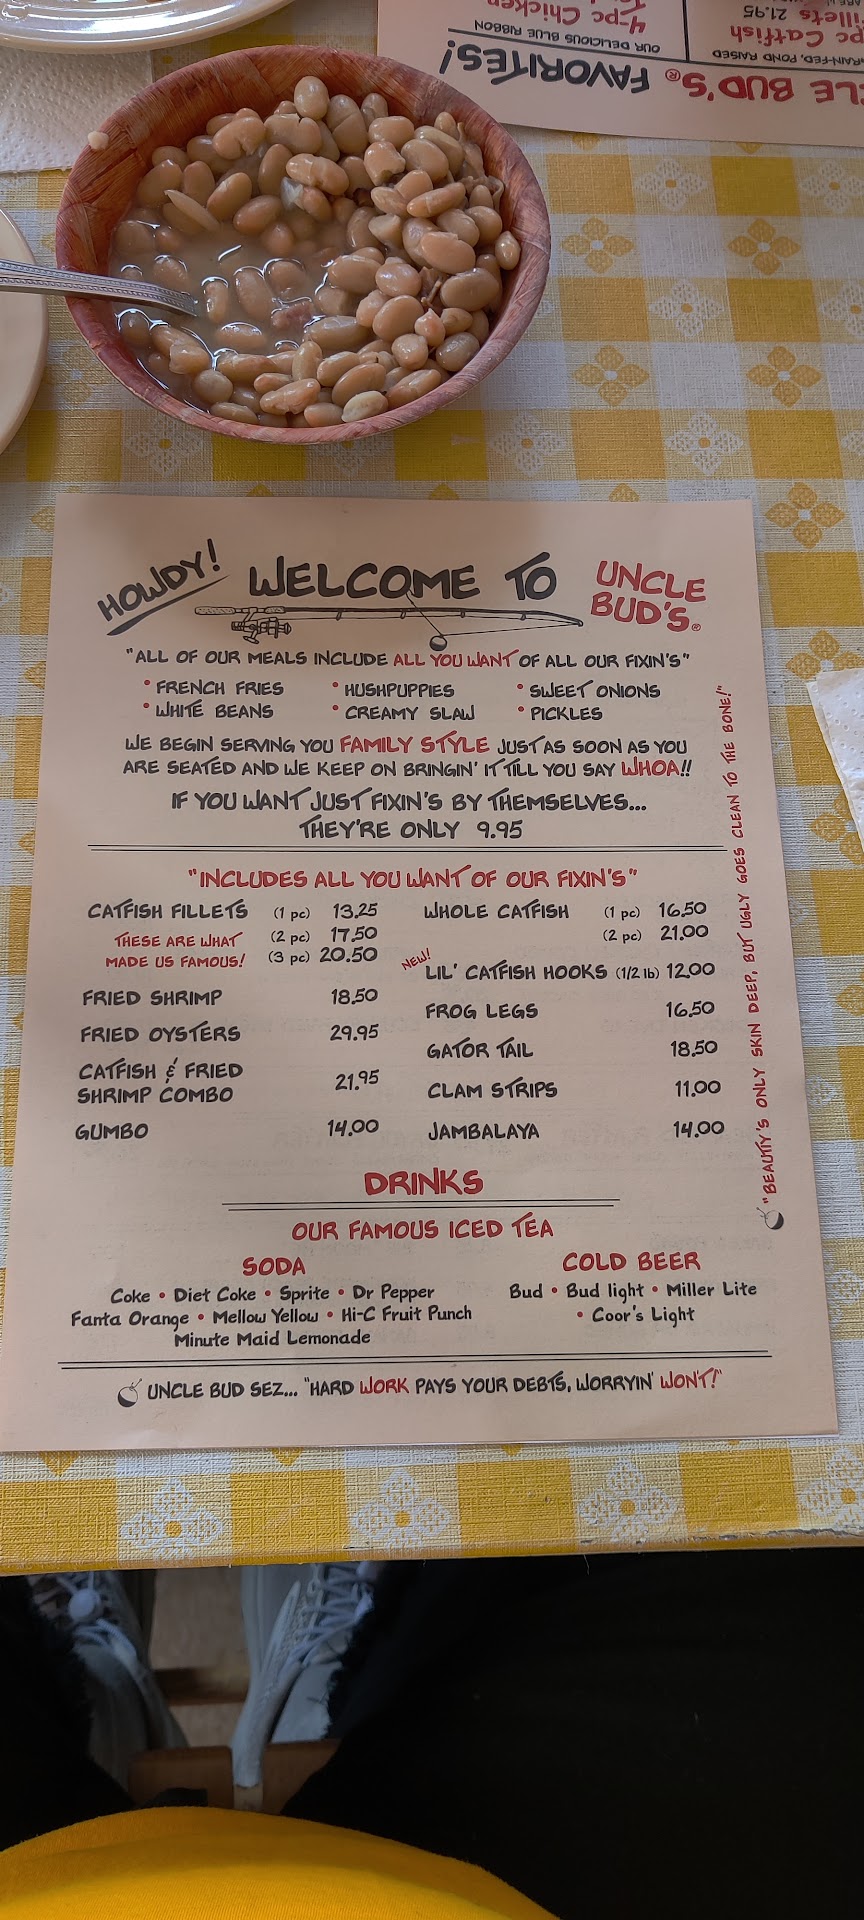 LE BUD'S® FAVORITES!
RAIN-FED, POND RAISED
pc Catfish
illets 21.95
OUR DELICIOUS BLUE RIBBON
4-pc Chicken
HOWDY! WELCOME TO UNCLE BUD'S®
"ALL OF OUR MEALS INCLUDE ALL YOU WANT OF ALL OUR FIXIN'S"
• FRENCH FRIES • HUSHPUPPIES • SWEET ONIONS
• WHITE BEANS • CREAMY SLAW • PICKLES
WE BEGIN SERVING YOU FAMILY STYLE JUST AS SOON AS YOU
ARE SEATED AND WE KEEP ON BRINGIN' IT TILL YOU SAY WHOA!!
IF YOU WANT JUST FIXIN'S BY THEMSELVES...
THEY'RE ONLY 9.95
"INCLUDES ALL YOU WANT OF OUR FIXIN'S"
CATFISH FILLETS (1 pc) 13.25
THESE ARE WHAT (2 pc) 17.50
MADE US FAMOUS! (3 pc) 20.50
FRIED SHRIMP 18.50
FRIED OYSTERS 29.95
CATFISH & FRIED
SHRIMP COMBO 21.95
GUMBO 14.00
WHOLE CATFISH (1 pc) 16.50
(2 pc) 21.00
NEW! LIL' CATFISH HOOKS (1/2 lb) 12.00
FROG LEGS 16.50
GATOR TAIL 18.50
CLAM STRIPS 11.00
JAMBALAYA 14.00
"BEAUTIY'S ONLY SKIN DEEP, BUT UGLY GOES CLEAN TO THE BONE!"
DRINKS
OUR FAMOUS ICED TEA
SODA
Coke • Diet Coke • Sprite • Dr Pepper
Fanta Orange • Mellow Yellow • Hi-C Fruit Punch
Minute Maid Lemonade
COLD BEER
Bud • Bud light • Miller Lite
• Coor's Light
UNCLE BUD SEZ... "HARD WORK PAYS YOUR DEBTS, WORRYIN' WON'T!"